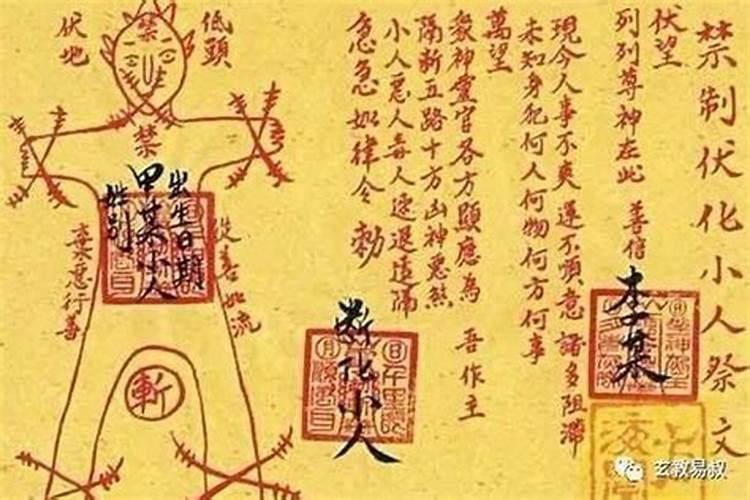 禁制伏化小人祭文
伏望
列列尊神在此 善信
李某
現今人事不爽運不順意諸多阻滯
未知身犯何人何物何方何事
萬望
眾神靈官各方顯應為 吾作主
隔斷五路十方凶神惡煞
小人惡人毒人速退遠隔
急急如律令 勅
斷化小人
低頭
伏地
禁
禁
出生日期
甲某小人
姓別
從善如流
棄惡行善
斬
玄教易叔